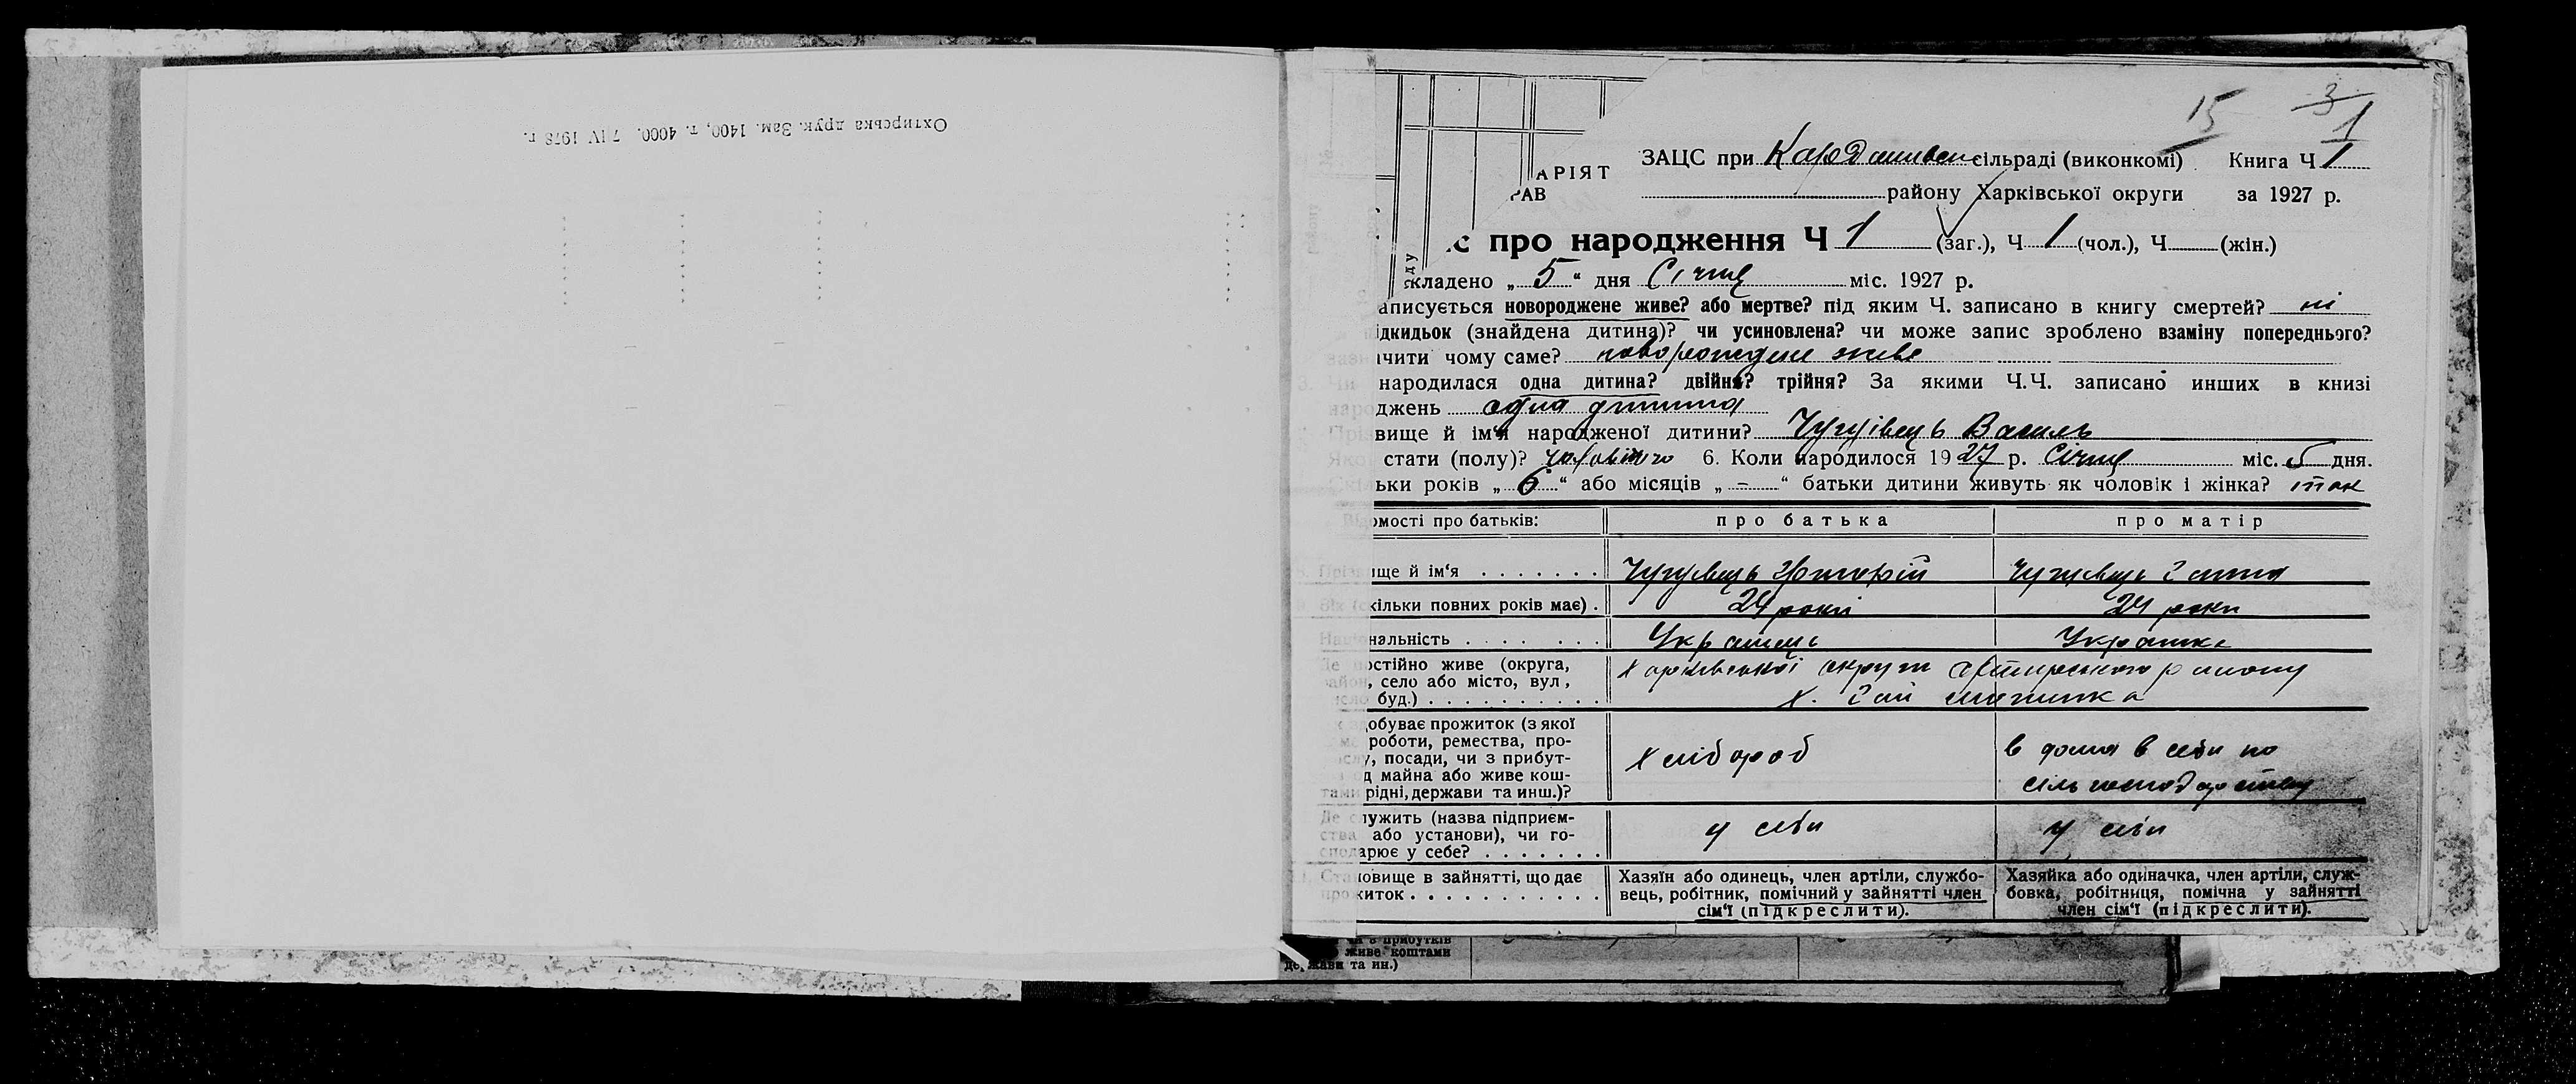 Охтирська друк. Зам. 1400, т. 4000. 7 IV 1978 г.
15 3
1
АРІЯТ
РАВ
ЗАЦС при Кардашивсь сільраді (виконкомі) Книга Ч 1
району Харківської округи за 1927 р.
с про народження Ч 1 (заг.), Ч 1 (чол.), Ч (жін.)
кладено „ 5 “ дня Січня міс. 1927 р.
аписується новороджене живе? або мертве? під яким Ч. записано в книгу смертей? ні
ідкидьок (знайдена дитина)? чи усиновлена? чи може запис зроблено взаміну попереднього?
зазн ічити чому саме? новорожденне живе
3. Чи народилася одна дитина? двійня? трійня? За якими Ч.Ч. записано инших в книзі
народжень одна дитина
Прізвище й ім'я народженої дитини? Чугуївець Василь
Якої стати (полу)? чоловічого 6. Коли народилося 1927 р. Січня міс. 5 дня.
Скільки років „ 6 “ або місяців „ - “ батьки дитини живуть як чоловік і жінка? так
Відомості про батьків: про батька про матір
Прізвище й ім'я Чугуївець Григорій Чугуївець Ганна
Вік (скільки повних років має) 24 роки 24 роки
Національність Українець Українка
Де постійно живе (округа,
район, село або місто, вул,
число буд.) Харківської округи Охтирського району
х. Гай
здобуває прожиток (з якої
роботи, ремества, про-
слу, посади, чи з прибут-
д майна або живе кош-
тами рідні, держави та инш.)? Хлібороб в дома в себи по
Де служить (назва підприєм-
ства або установи), чи го-
сподарює у себе? у себи у себи
Становище в зайнятті, що дає
прожиток
Хазяїн або одинець, член артіли, службо-
вець, робітник, помічний у зайнятті член
сім'ї (підкреслити).
Хазяйка або одиначка, член артіли, служ-
бовка, робітниця, помічна у зайнятті
член сім'ї (підкреслити).
чи з прибутків
живе коштами
держави та ин.)